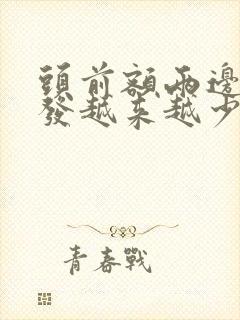 頭前額兩邊
發越來越少
青春戰